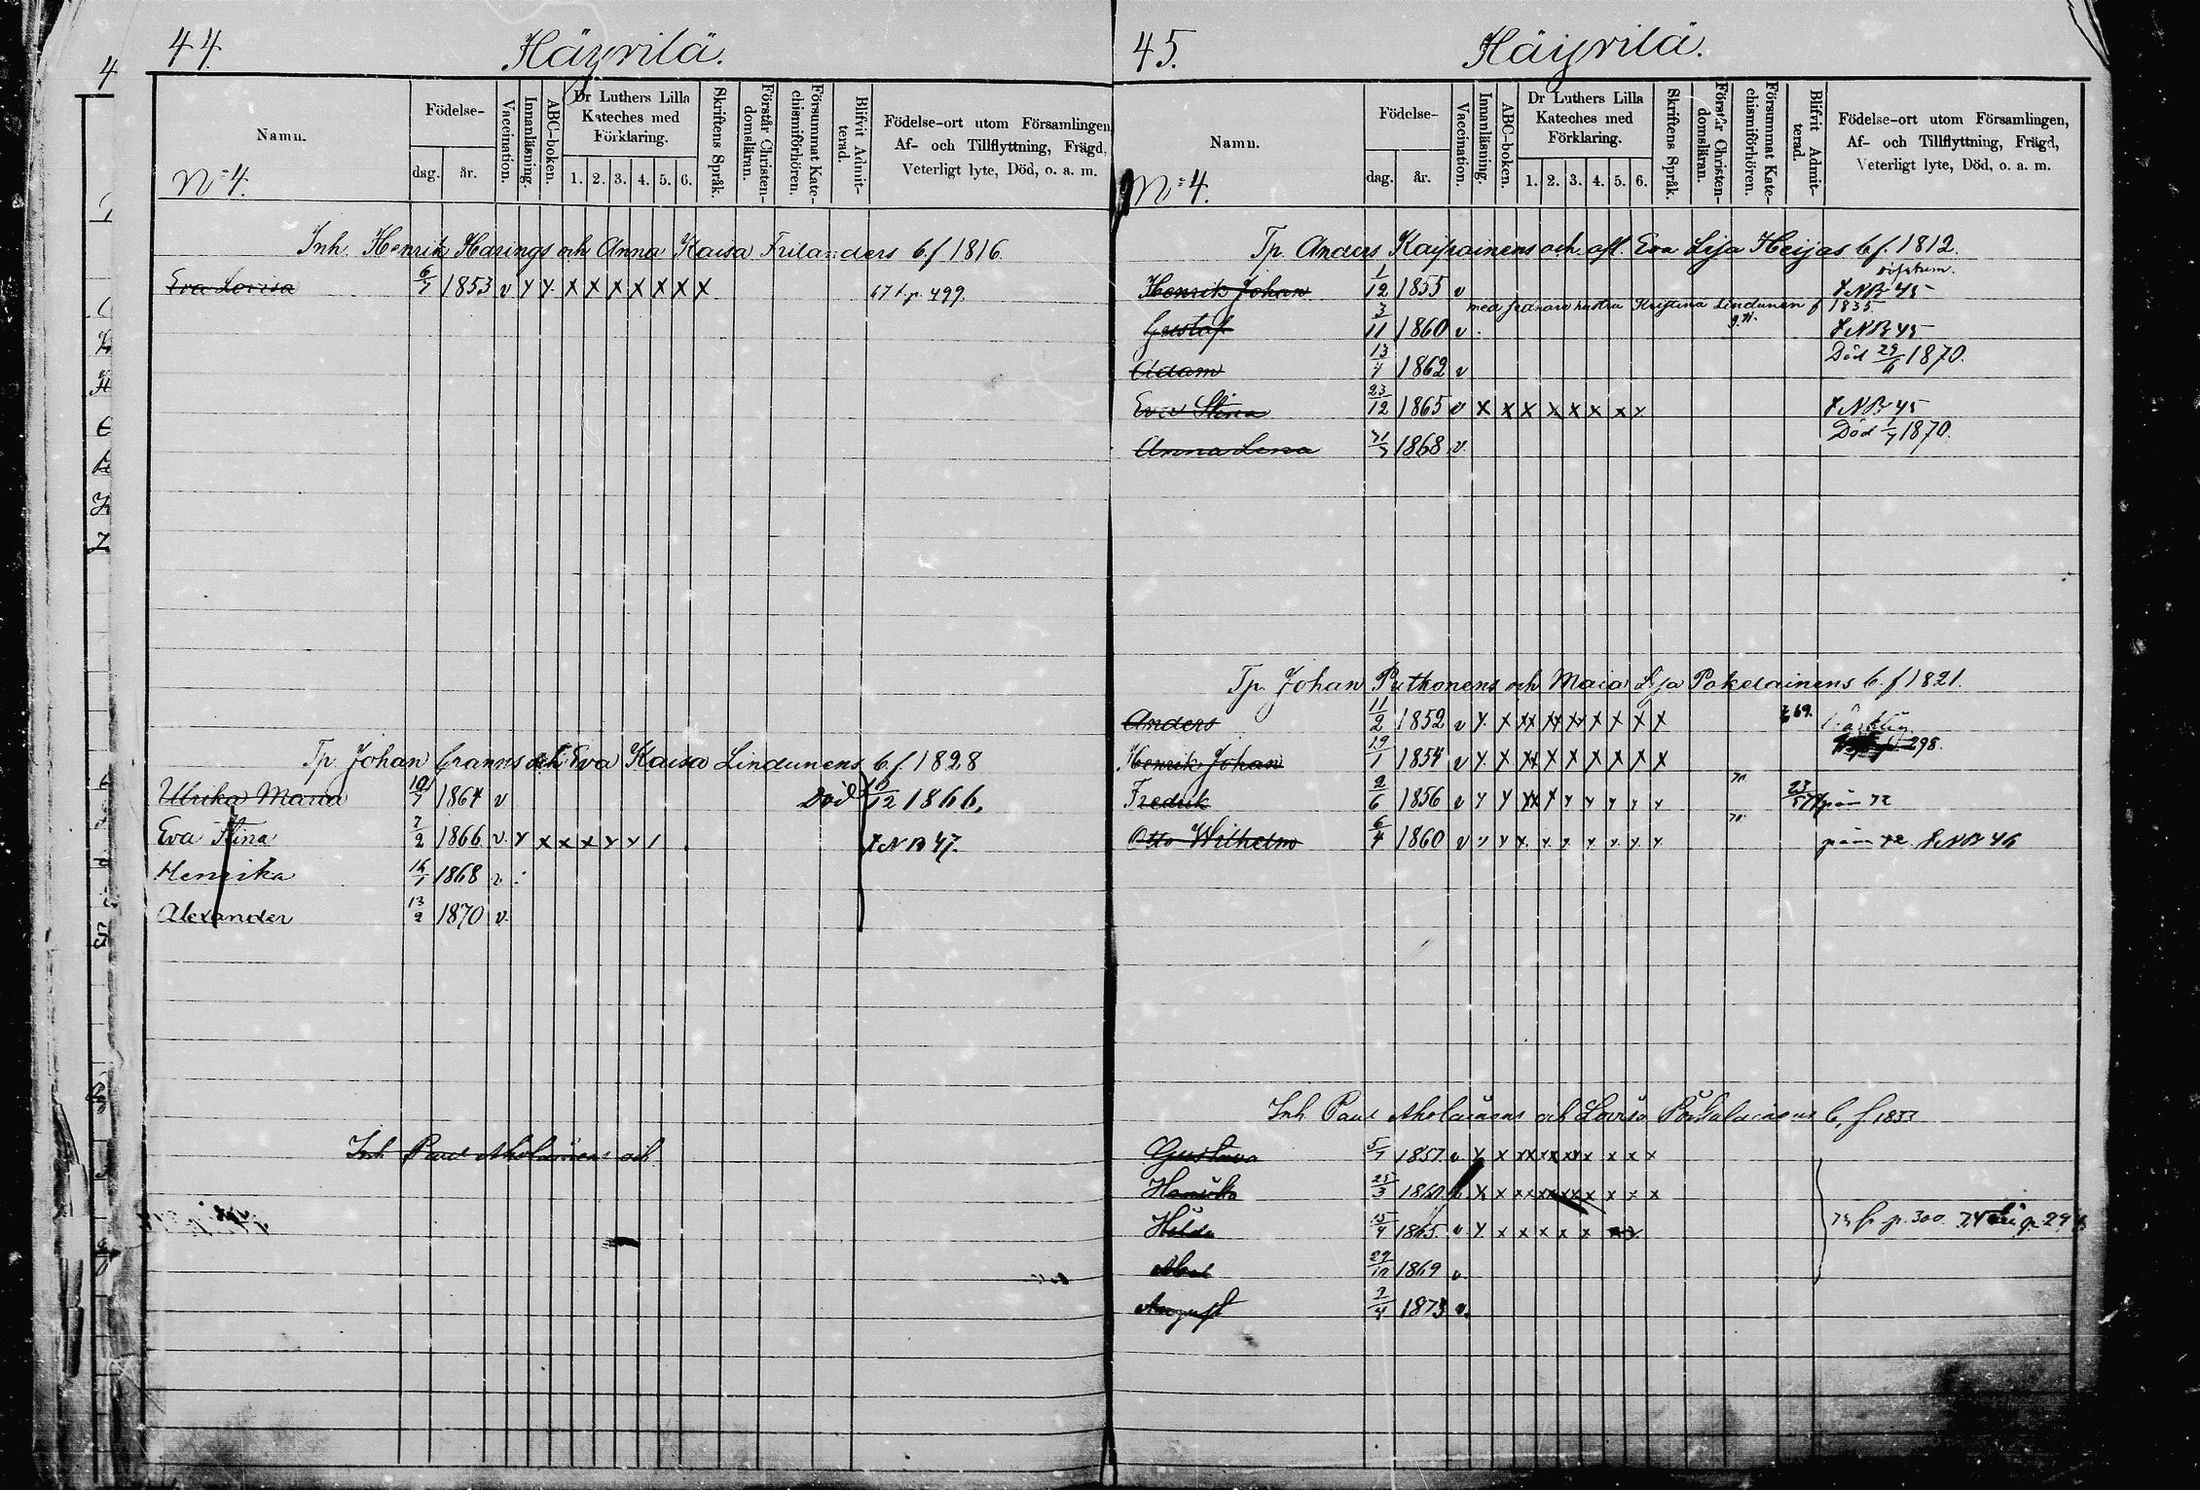 44.
Häyrilä.
Namn.
Födelse-
dag.
år.
Vaccination.
Innanläsning.
ABC-boken.
Dr Luthers Lilla
Kateches med
Förklaring.
1. 2. 3. 4. 5. 6.
Skriftens Språk.
Förstår Christen-
domsläran.
Försummat Kate-
chismiförhören.
Blifvit Admit-
terad.
Födelse-ort utom Församlingen,
Af- och Tillflyttning, Frägd,
Veterligt lyte, Död, o. a. m.
N:4.
Inh. Henrik Harings och Anna Kaisa Frilanders b. f 1816.
Eva Lovisa 6/7 1853 v y y x x x x x x x p. 499.
Tp. Johan och Eva Kaisa Lindunens b. f. 1828
Ulrika Maria 10/7 1864 v Död 10/12 1866,
Eva Stina 7/2 1866 v. y x x x y y / f NB 47.
Henrika 1868 v.
Alexander 13/2 1870 v.
Inh Paul Aholainens och
45.
Häyrilä.
Namn.
Födelse-
dag.
år.
Vaccination.
Innanläsning.
ABC-boken.
Dr Luthers Lilla
Kateches med
Förklaring.
1. 2. 3. 4. 5. 6.
Skriftens Språk.
Förstår Christen-
domsläran.
Försummat Kate-
chismiförhören.
Blifvit Admit-
terad.
Födelse-ort utom Församlingen,
Af- och Tillflyttning, Frägd,
Veterligt lyte, Död, o. a. m.
N:4.
Tp. Anders Kaipainens och afl. Eva Lisa Heijas b f. 1812.
Henrik Johan 1/12 1855 v f NB 45
med hustru Kristina Lindunen f 1835
Gustaf 3/11 1860 v. f NB 45
Adam 13/4 1862 v Död 29/6 1870.
Eva Stina 23/12 1865 v x x x x x x x y f NB 45
Anna Lena 1868 v. Död 1870.
Tp. Johan Puthonens och Maia Lisa Pokelainens b. f 1821.
Anders 11/2 1852 v y. x xx xx xx x x x x 69.
Henrik Johan 19/1 1854 v y x xx x x x x x x 298.
Fredrik 2/6 1856 v y y xx x y y y y y
Otto Wilhelm 6/4 1860 v y y x y y y y y y f NB 46
Inh Paul Aholainens och Lovisa b. f 1833
Gustava 5/7 1857. v y x xx xx xx x x x x
Henrika 25/3 1860 v x x xx xx xx x x x x
Hilda 15/4 1865. v y x x x x x p. 300. p. 29
Abel 29/10 1869 v
August 7/4 1873 v.